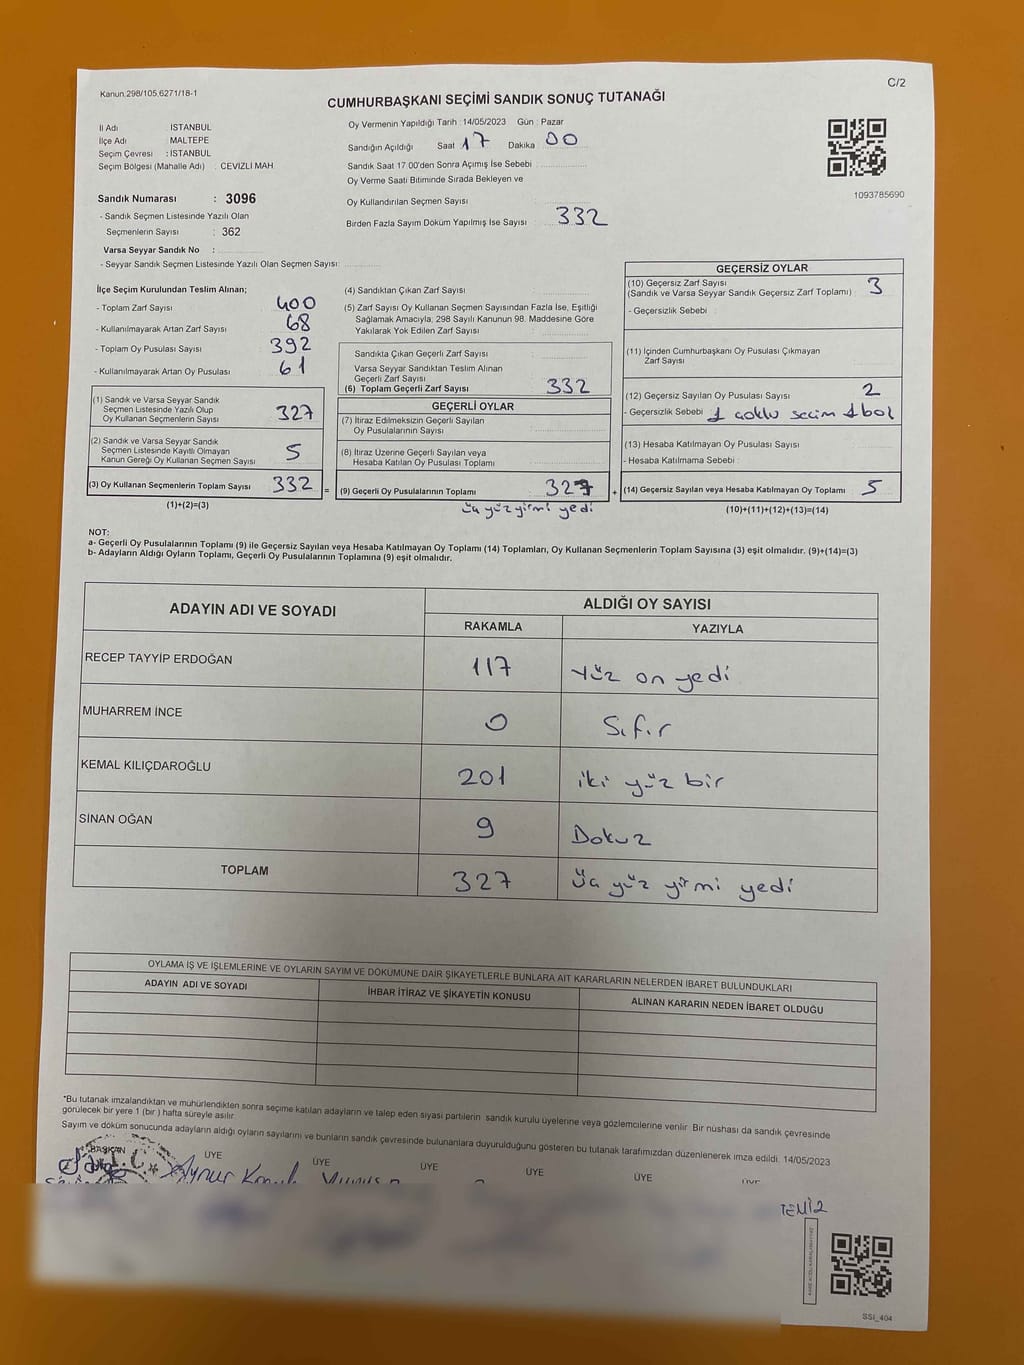 Kanun.298/105,6271/18-1
C/2
CUMHURBAŞKANI SEÇİMİ SANDIK SONUÇ TUTANAĞI
İl Adı : İSTANBUL
İlçe Adı : MALTEPE
Seçim Çevresi : İSTANBUL
Seçim Bölgesi (Mahalle Adı) : CEVİZLİ MAH.
Sandık Numarası : 3096
- Sandık Seçmen Listesinde Yazılı Olan
Seçmenlerin Sayısı : 362
Varsa Seyyar Sandık No :
- Seyyar Sandık Seçmen Listesinde Yazılı Olan Seçmen Sayısı:
Oy Vermenin Yapıldığı Tarih : 14/05/2023 Gün : Pazar
Sandığın Açıldığı Saat 17 Dakika 00
Sandık Saat 17.00'den Sonra Açımış İse Sebebi
Oy Verme Saati Bitiminde Sırada Bekleyen ve
Oy Kullandırılan Seçmen Sayısı
Birden Fazla Sayım Döküm Yapılmış İse Sayısı 332
1093785690
İlçe Seçim Kurulundan Teslim Alınan;
- Toplam Zarf Sayısı 400
- Kullanılmayarak Artan Zarf Sayısı 68
- Toplam Oy Pusulası Sayısı 392
- Kullanılmayarak Artan Oy Pusulası 61
(1) Sandık ve Varsa Seyyar Sandık
Seçmen Listesinde Yazılı Olup
Oy Kullanan Seçmenlerin Sayısı 327
(2) Sandık ve Varsa Seyyar Sandık
Seçmen Listesinde Kayıtlı Olmayan
Kanun Gereği Oy Kullanan Seçmen Sayısı 5
(3) Oy Kullanan Seçmenlerin Toplam Sayısı 332 =
(1)+(2)=(3)
(4) Sandıktan Çıkan Zarf Sayısı
(5) Zarf Sayısı Oy Kullanan Seçmen Sayısından Fazla İse, Eşitliği
Sağlamak Amacıyla; 298 Sayılı Kanunun 98. Maddesine Göre
Yakılarak Yok Edilen Zarf Sayısı
Sandıkta Çıkan Geçerli Zarf Sayısı
Varsa Seyyar Sandıktan Teslim Alınan
Geçerli Zarf Sayısı
(6) Toplam Geçerli Zarf Sayısı 332
GEÇERLİ OYLAR
(7) İtiraz Edilmeksizin Geçerli Sayılan
Oy Pusulalarının Sayısı
(8) İtiraz Üzerine Geçerli Sayılan veya
Hesaba Katılan Oy Pusulası Toplamı
(9) Geçerli Oy Pusulalarının Toplamı 327 +
üç yüz yirmi yedi
GEÇERSİZ OYLAR
(10) Geçersiz Zarf Sayısı
(Sandık ve Varsa Seyyar Sandık Geçersiz Zarf Toplamı) : 3
- Geçersizlik Sebebi :
(11) İçinden Cumhurbaşkanı Oy Pusulası Çıkmayan
Zarf Sayısı
(12) Geçersiz Sayılan Oy Pusulası Sayısı 2
- Geçersizlik Sebebi 1 çoklu seçim 1 bol
(13) Hesaba Katılmayan Oy Pusulası Sayısı
- Hesaba Katılmama Sebebi :
(14) Geçersiz Sayılan veya Hesaba Katılmayan Oy Toplamı 5
(10)+(11)+(12)+(13)=(14)
NOT:
a- Geçerli Oy Pusulalarının Toplamı (9) ile Geçersiz Sayılan veya Hesaba Katılmayan Oy Toplamı (14) Toplamları, Oy Kullanan Seçmenlerin Toplam Sayısına (3) eşit olmalıdır. (9)+(14)=(3)
b- Adayların Aldığı Oyların Toplamı, Geçerli Oy Pusulalarının Toplamına (9) eşit olmalıdır.
ADAYIN ADI VE SOYADI ALDIĞI OY SAYISI
RAKAMLA YAZIYLA
RECEP TAYYİP ERDOĞAN 117 Yüz on yedi
MUHARREM İNCE 0 Sıfır
KEMAL KILIÇDAROĞLU 201 iki yüz bir
SİNAN OĞAN 9 Dokuz
TOPLAM 327 üç yüz yirmi yedi
OYLAMA İŞ VE İŞLEMLERİNE VE OYLARIN SAYIM VE DÖKÜMÜNE DAİR ŞİKAYETLERLE BUNLARA AİT KARARLARIN NELERDEN İBARET BULUNDUKLARI
ADAYIN ADI VE SOYADI İHBAR İTİRAZ VE ŞİKAYETİN KONUSU ALINAN KARARIN NEDEN İBARET OLDUĞU
"Bu tutanak imzalandıktan ve mühürlendikten sonra seçime katılan adayların ve talep eden siyasi partilerin sandık kurulu üyelerine veya gözlemcilerine verilir. Bir nüshası da sandık çevresinde
görülecek bir yere 1 (bir ) hafta süreyle asılır.
Sayım ve döküm sonucunda adayların aldığı oyların sayılarını ve bunların sandık çevresinde bulunanlara duyurulduğunu gösteren bu tutanak tarafımızdan düzenlenerek imza edildi. 14/05/2023
BAŞKAN ÜYE ÜYE ÜYE ÜYE ÜYE ÜYE
T.C.
Aynur
TEMİZ
SSİ_404